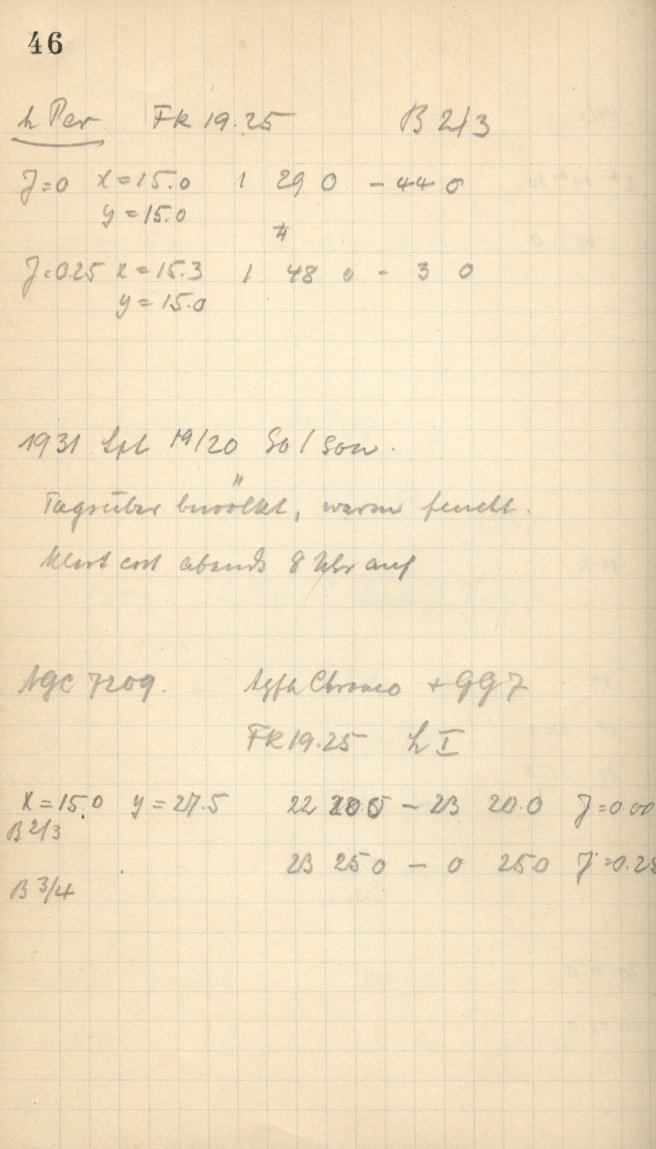 46
h Per FK 19.25 B 2/3
J=0 x=15.0 1 29 0 - 44 0
y=15.0
J=0.25 x=15.3 1 48 0 - 3 0
y=15.0
1931 Spt 19/20 So/Son.
Tagsüber bewölkt, warm feucht.
klart erst abends 8 Uhr auf
NGC 7209. Agfa Chromo + GG7
FK 19.25 h I
x=15.0 y=27.5 22 20 0 - 23 20.0 J=0.00
B 2/3
23 25 0 - 0 25 0 J=0.25
B 3/4